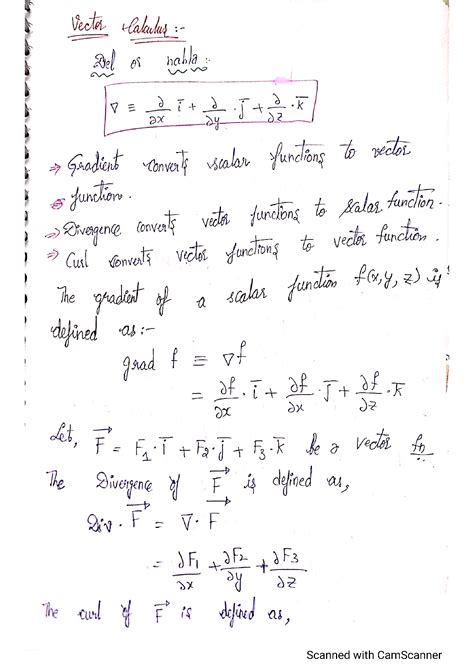 Vector Calculus :-
Del or nabla :-
∇ ≡ ∂/∂x i̅ + ∂/∂y · j̅ + ∂/∂z · k̅
⇒ Gradient converts scalar functions to vector
function.
⇒ Divergence converts vector functions to scalar function.
⇒ Curl converts vector functions to vector function.
The gradient of a scalar function f(x, y, z) is
defined as:-
grad f ≡ ∇f
= ∂f/∂x · i̅ + ∂f/∂x · j̅ + ∂f/∂z · k̅
Let, F⃗ = F₁ · i̅ + F₂ · j̅ + F₃ · k̅ be a vector fn.
The Divergence of F⃗ is defined as,
Div · F⃗ = ∇ · F⃗
= ∂F₁/∂x + ∂F₂/∂y + ∂F₃/∂z
The curl of F⃗ is defined as,
Scanned with CamScanner